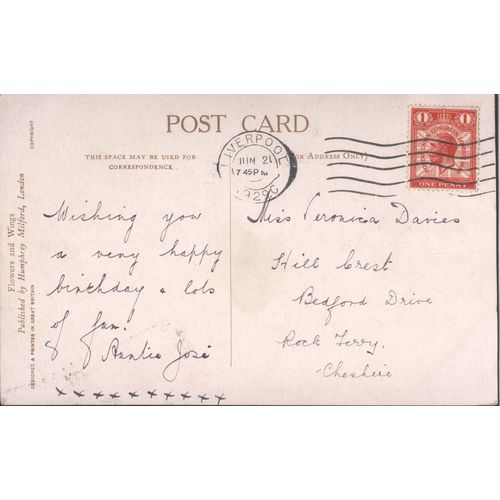 POST CARD
THIS SPACE MAY BE USED FOR
CORRESPONDENCE.
FOR ADDRESS ONLY)
LIVERPOOL
JUN 21
7 45 PM
1929
1 1
ONE PENNY
Wishing you
a very happy
birthday & lots
of fun.
Auntie José
x x x x x x x x x x
Miss Veronica Davies
Hill Crest
Bedford Drive
Rock Ferry
Cheshire
COPYRIGHT
Flowers and Wings
Published by Humphrey Milford, London
DESIGNED & PRINTED IN GREAT BRITAIN